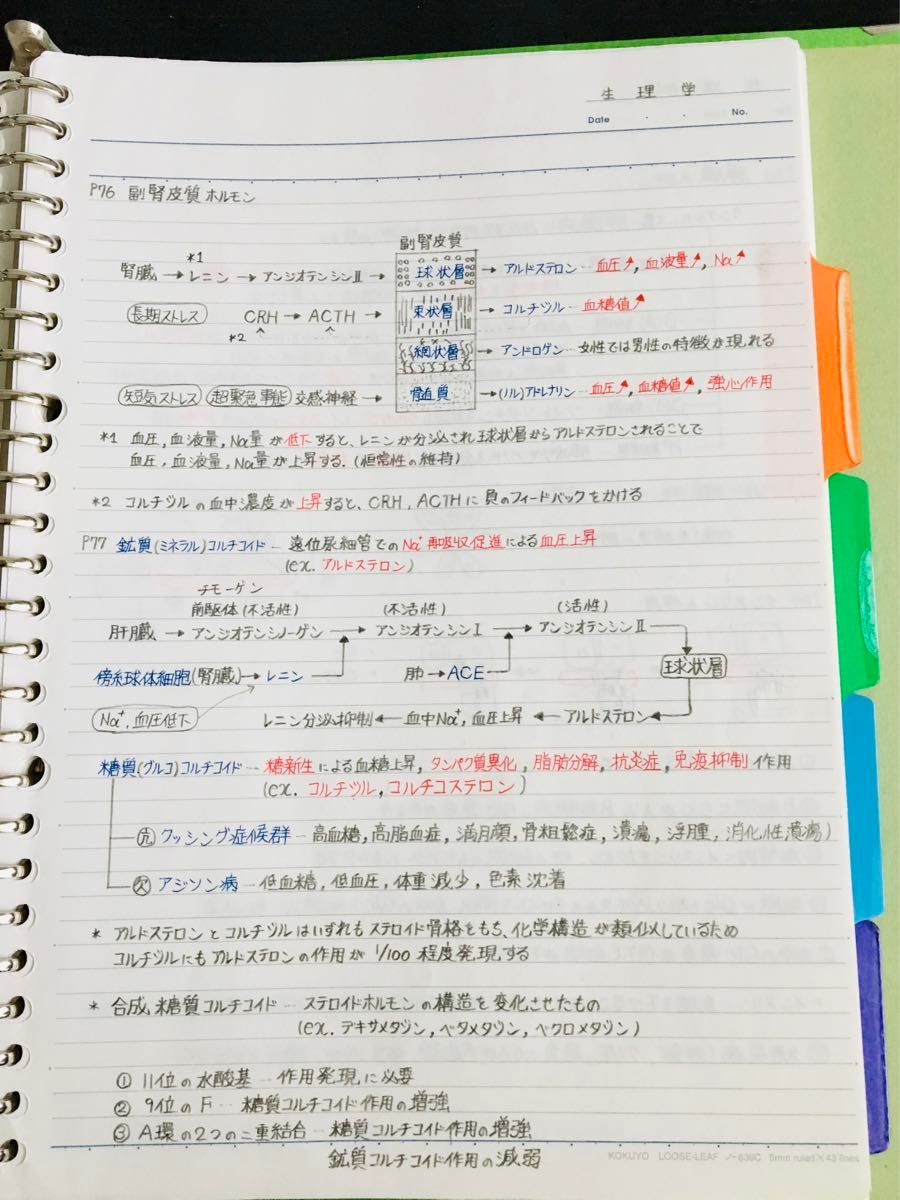 生理学
Date ・ ・ No.
P76 副腎皮質ホルモン
副腎皮質
*1
腎臓 → レニン → アンジオテンシンⅡ → 球状層 → アルドステロン … 血圧↗, 血液量↗, Na↗
長期ストレス CRH → ACTH → 束状層 → コルチゾル … 血糖値↗
*2
網状層 → アンドロゲン … 女性では男性の特徴が現れる
短気ストレス 超緊急事態 交感神経 → 髄質 → (ノル)アドレナリン … 血圧↗, 血糖値↗, 強心作用
*1 血圧, 血液量, Na量が低下すると、レニンが分泌され球状層からアルドステロンされることで
血圧, 血液量, Na量が上昇する. (恒常性の維持)
*2 コルチゾルの血中濃度が上昇すると、CRH, ACTHに負のフィードバックをかける
P77 鉱質(ミネラル)コルチコイド … 遠位尿細管でのNa⁺再吸収促進による血圧上昇
(ex. アルドステロン)
チモーゲン
前駆体(不活性) (不活性) (活性)
肝臓 → アンジオテンシノーゲン → アンジオテンシンⅠ → アンジオテンシンⅡ
傍糸球体細胞(腎臓) → レニン 肺 → ACE 球状層
Na⁺, 血圧低下 レニン分泌抑制 ← 血中Na⁺, 血圧上昇 ← アルドステロン
糖質(グルコ)コルチコイド … 糖新生による血糖上昇, タンパク質異化, 脂肪分解, 抗炎症, 免疫抑制作用
(ex. コルチゾル, コルチコステロン)
亢 クッシング症候群 … 高血糖, 高脂血症, 満月顔, 骨粗鬆症, 潰瘍, 浮腫, 消化性潰瘍)
欠 アジソン病 … 低血糖, 低血圧, 体重減少, 色素沈着
* アルドステロンとコルチゾルはいずれもステロイド骨格をもち、化学構造が類似しているため
コルチゾルにもアルドステロンの作用が 1/100 程度発現する
* 合成糖質コルチコイド … ステロイドホルモンの構造を変化させたもの
(ex. デキサメタゾン, ベタメタゾン, ベクロメタゾン)
① 11位の水酸基 … 作用発現に必要
② 9位のF … 糖質コルチコイド作用の増強
③ A環の2つの二重結合 … 糖質コルチコイド作用の増強
鉱質コルチコイド作用の減弱
KOKUYO LOOSE-LEAF ノ-836C 6mm ruled×43 lines